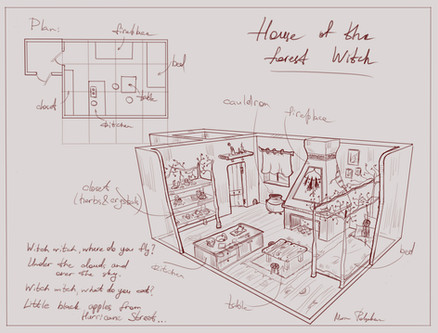 Plan:
fireplace
bed
closet
table
kitchen
House of the
forest Witch
cauldron
fireplace
closet
(herbs & crystals)
kitchen
table
bed
Witch witch, where do you fly?
Under the clouds and
over the sky.
Witch witch, what do you eat?
Little black apples from
Hurricane Street...